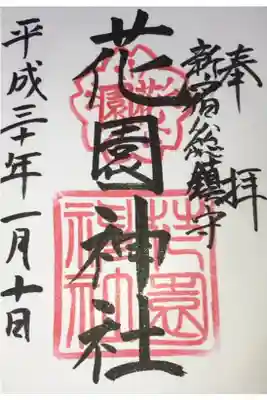 奉拝
新宿総鎮守
花園神社
平成三十年一月十日
花園
花園神社